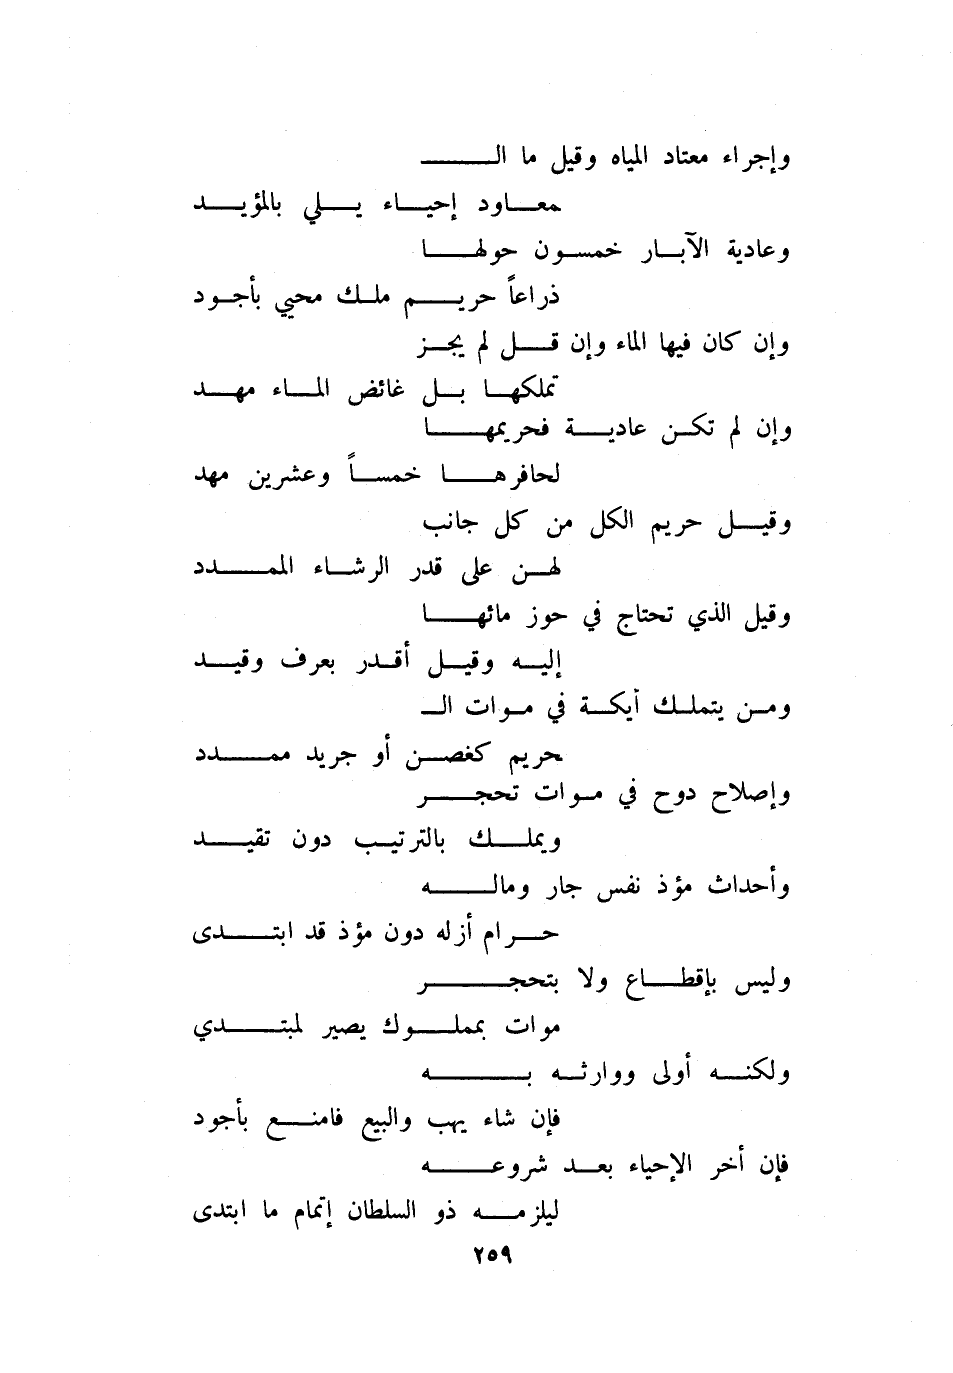 وإجراء معتاد المياه وقيل ما الـ
معاود إحياء يلي بالمؤيد
وعادية الآبار خمسون حولها
ذراعاً حريم ملك محيي بأجود
وإن كان فيها الماء وإن قل لم يجز
تملكها بل غائض الماء مهد
وإن لم تكن عادية فحريمها
لحافرها خمساً وعشرين مهد
وقيل حريم الكل من كل جانب
لهن على قدر الرشاء الممدد
وقيل الذي تحتاج في حوز مائها
إليه وقيل أقدر بعرف وقيد
ومن يتملك أيكة في موات الـ
حريم كغصن أو جريد ممدد
وإصلاح دوح في موات تحجر
ويملك بالترتيب دون تقيد
وأحداث مؤذ نفس جار وماله
حرام أزله دون مؤذ قد ابتدى
وليس بإقطاع ولا بتحجر
موات بمملوك يصير لمبتدي
ولكنه أولى ووارثه به
فإن شاء يهب والبيع فامنع بأجود
فإن أخر الإحياء بعد شروعه
ليلزمه ذو السلطان إتمام ما ابتدى
٢٥٩